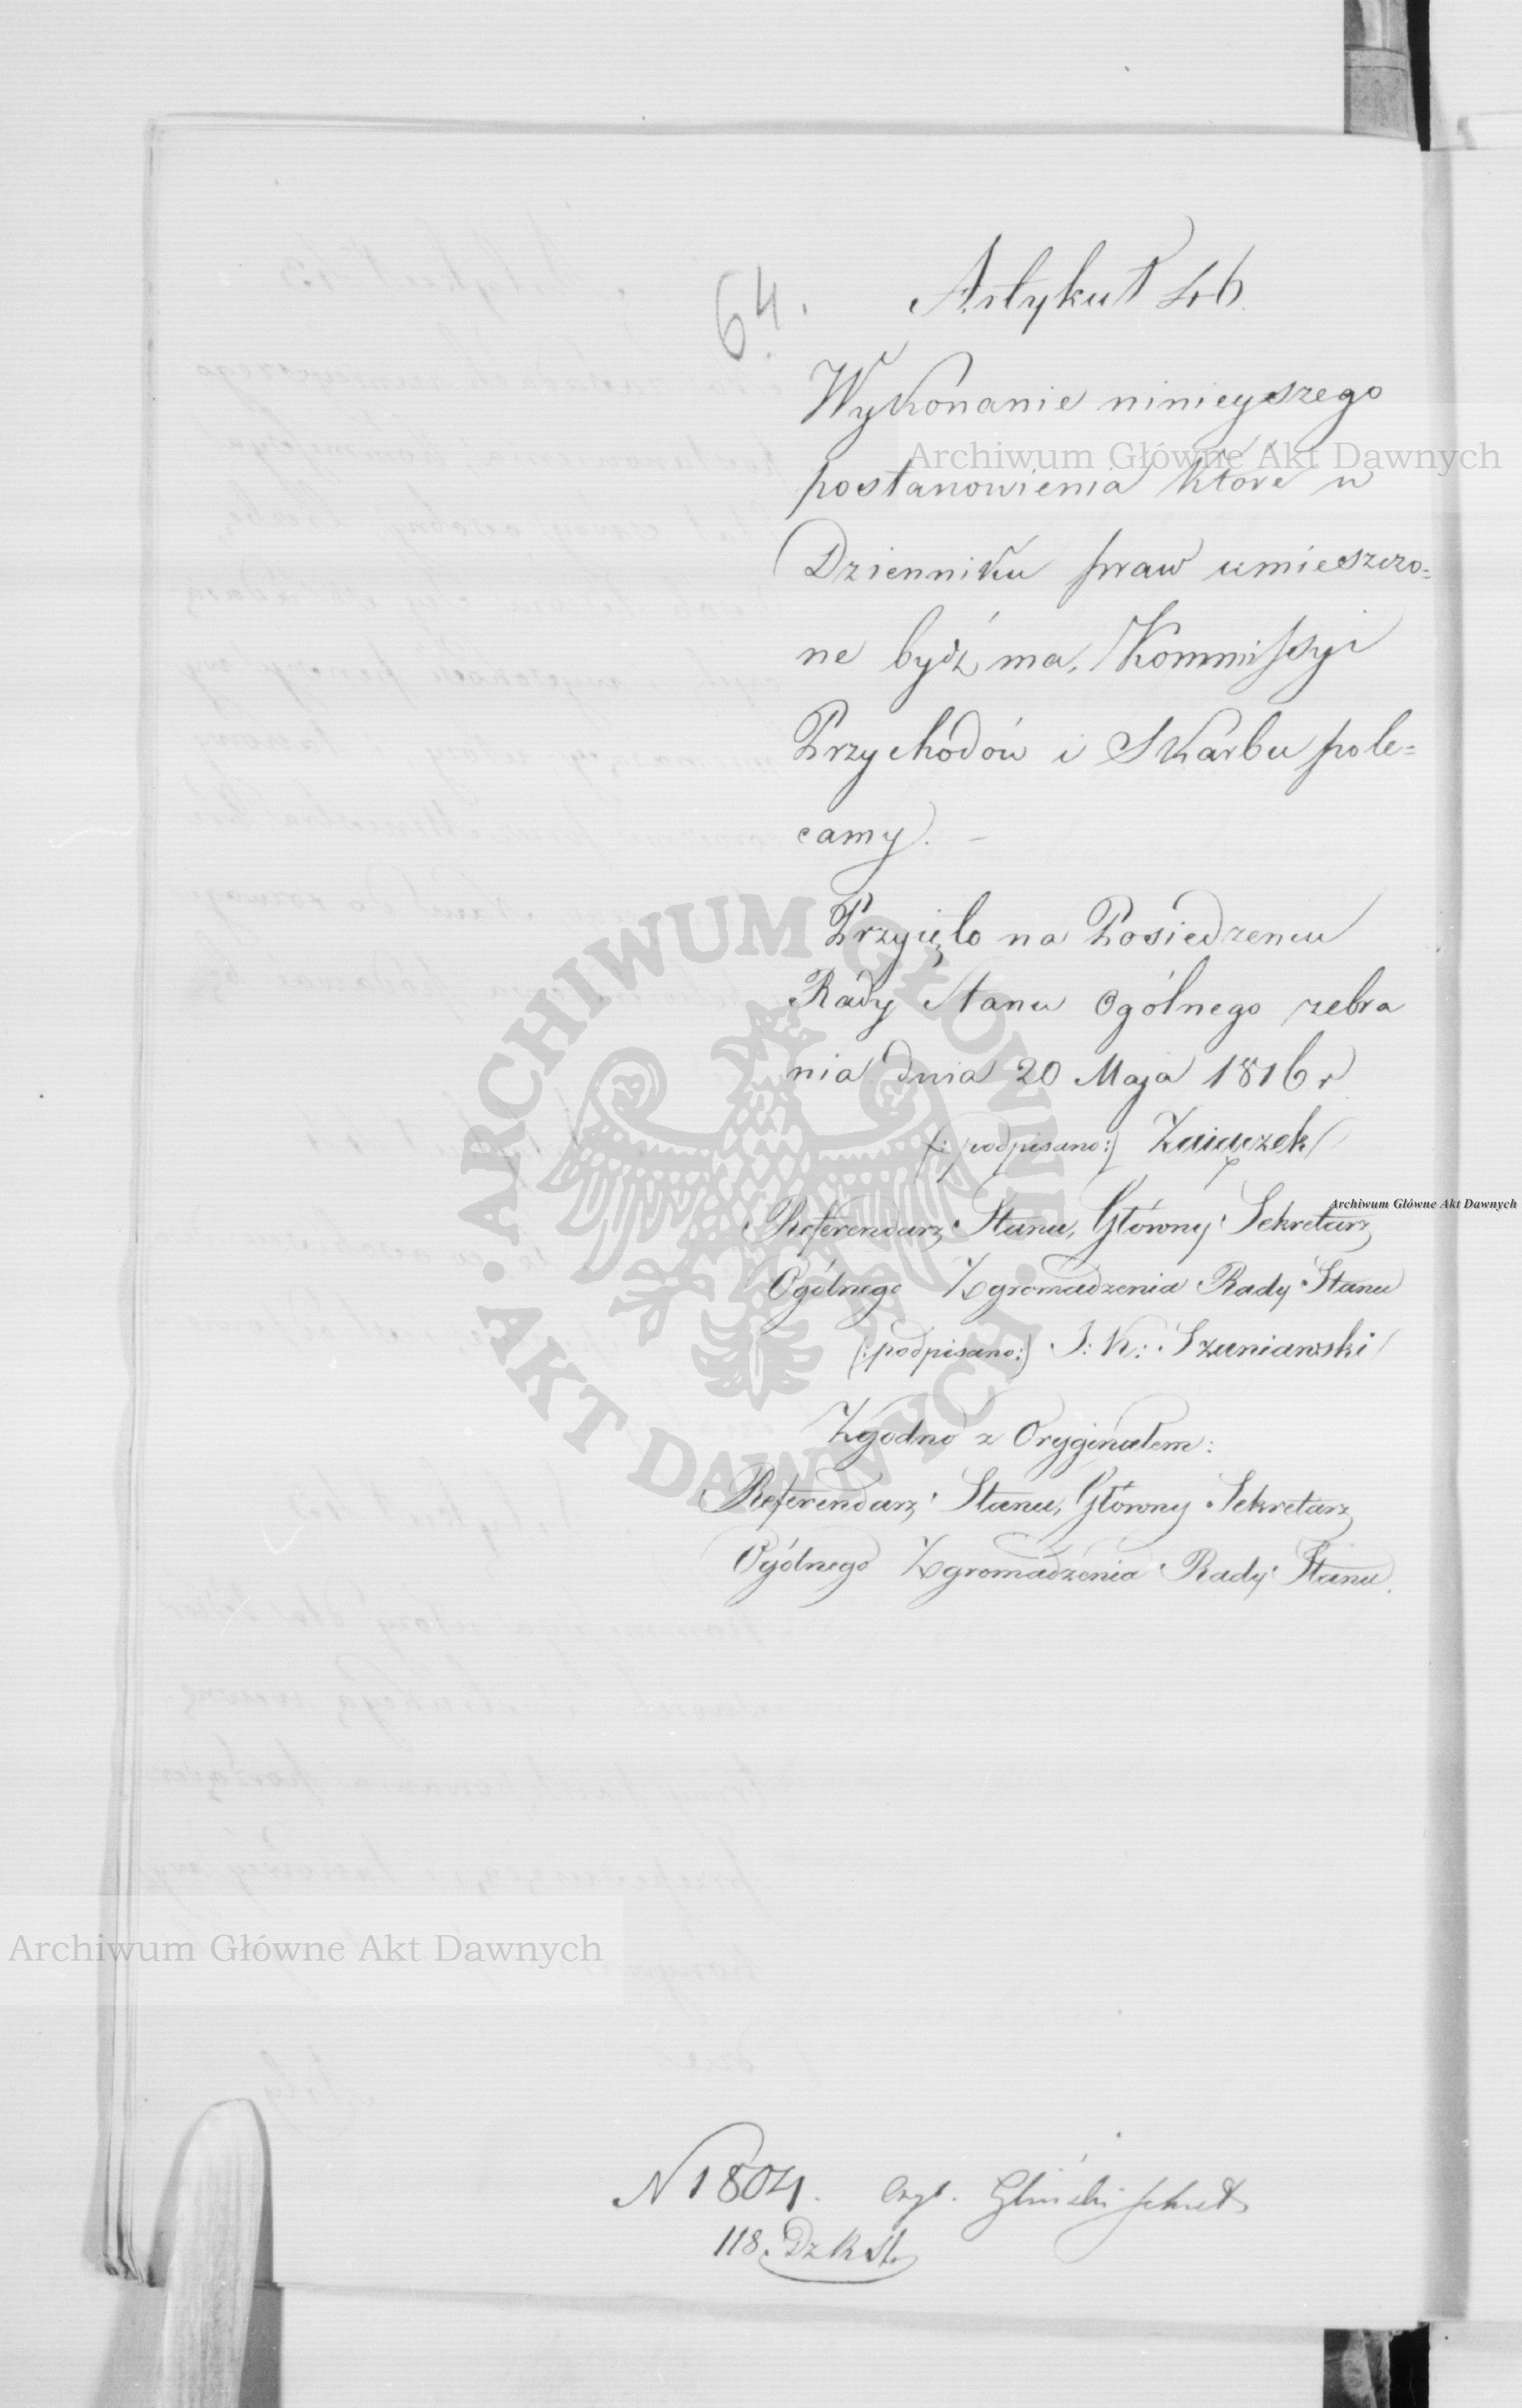 64.
Artykuł 46.
Wykonanie ninieyszego
postanowienia które w
Dzienniku praw umieszczo=
ne bydź ma, Kommissyi
Przychodów i Skarbu pole=
camy. –
Przyięto na Posiedzeniu
Rady Stanu Ogólnego zebra
nia dnia 20 Maja 1816 r
(: podpisano :) Zaiączek
Referendarz Stanu, Główny Sekretarz
Ogólnego Zgromadzenia Rady Stanu
(: podpisano :) J: K: Szaniawski
Zgodno z Oryginałem:
Referendarz Stanu, Główny Sekretarz
Ogólnego Zgromadzenia Rady Stanu.
N 1804.
118. Dz R St.
Archiwum Główne Akt Dawnych
Archiwum Główne Akt Dawnych
Archiwum Główne Akt Dawnych
ARCHIWUM GŁÓWNE AKT DAWNYCH